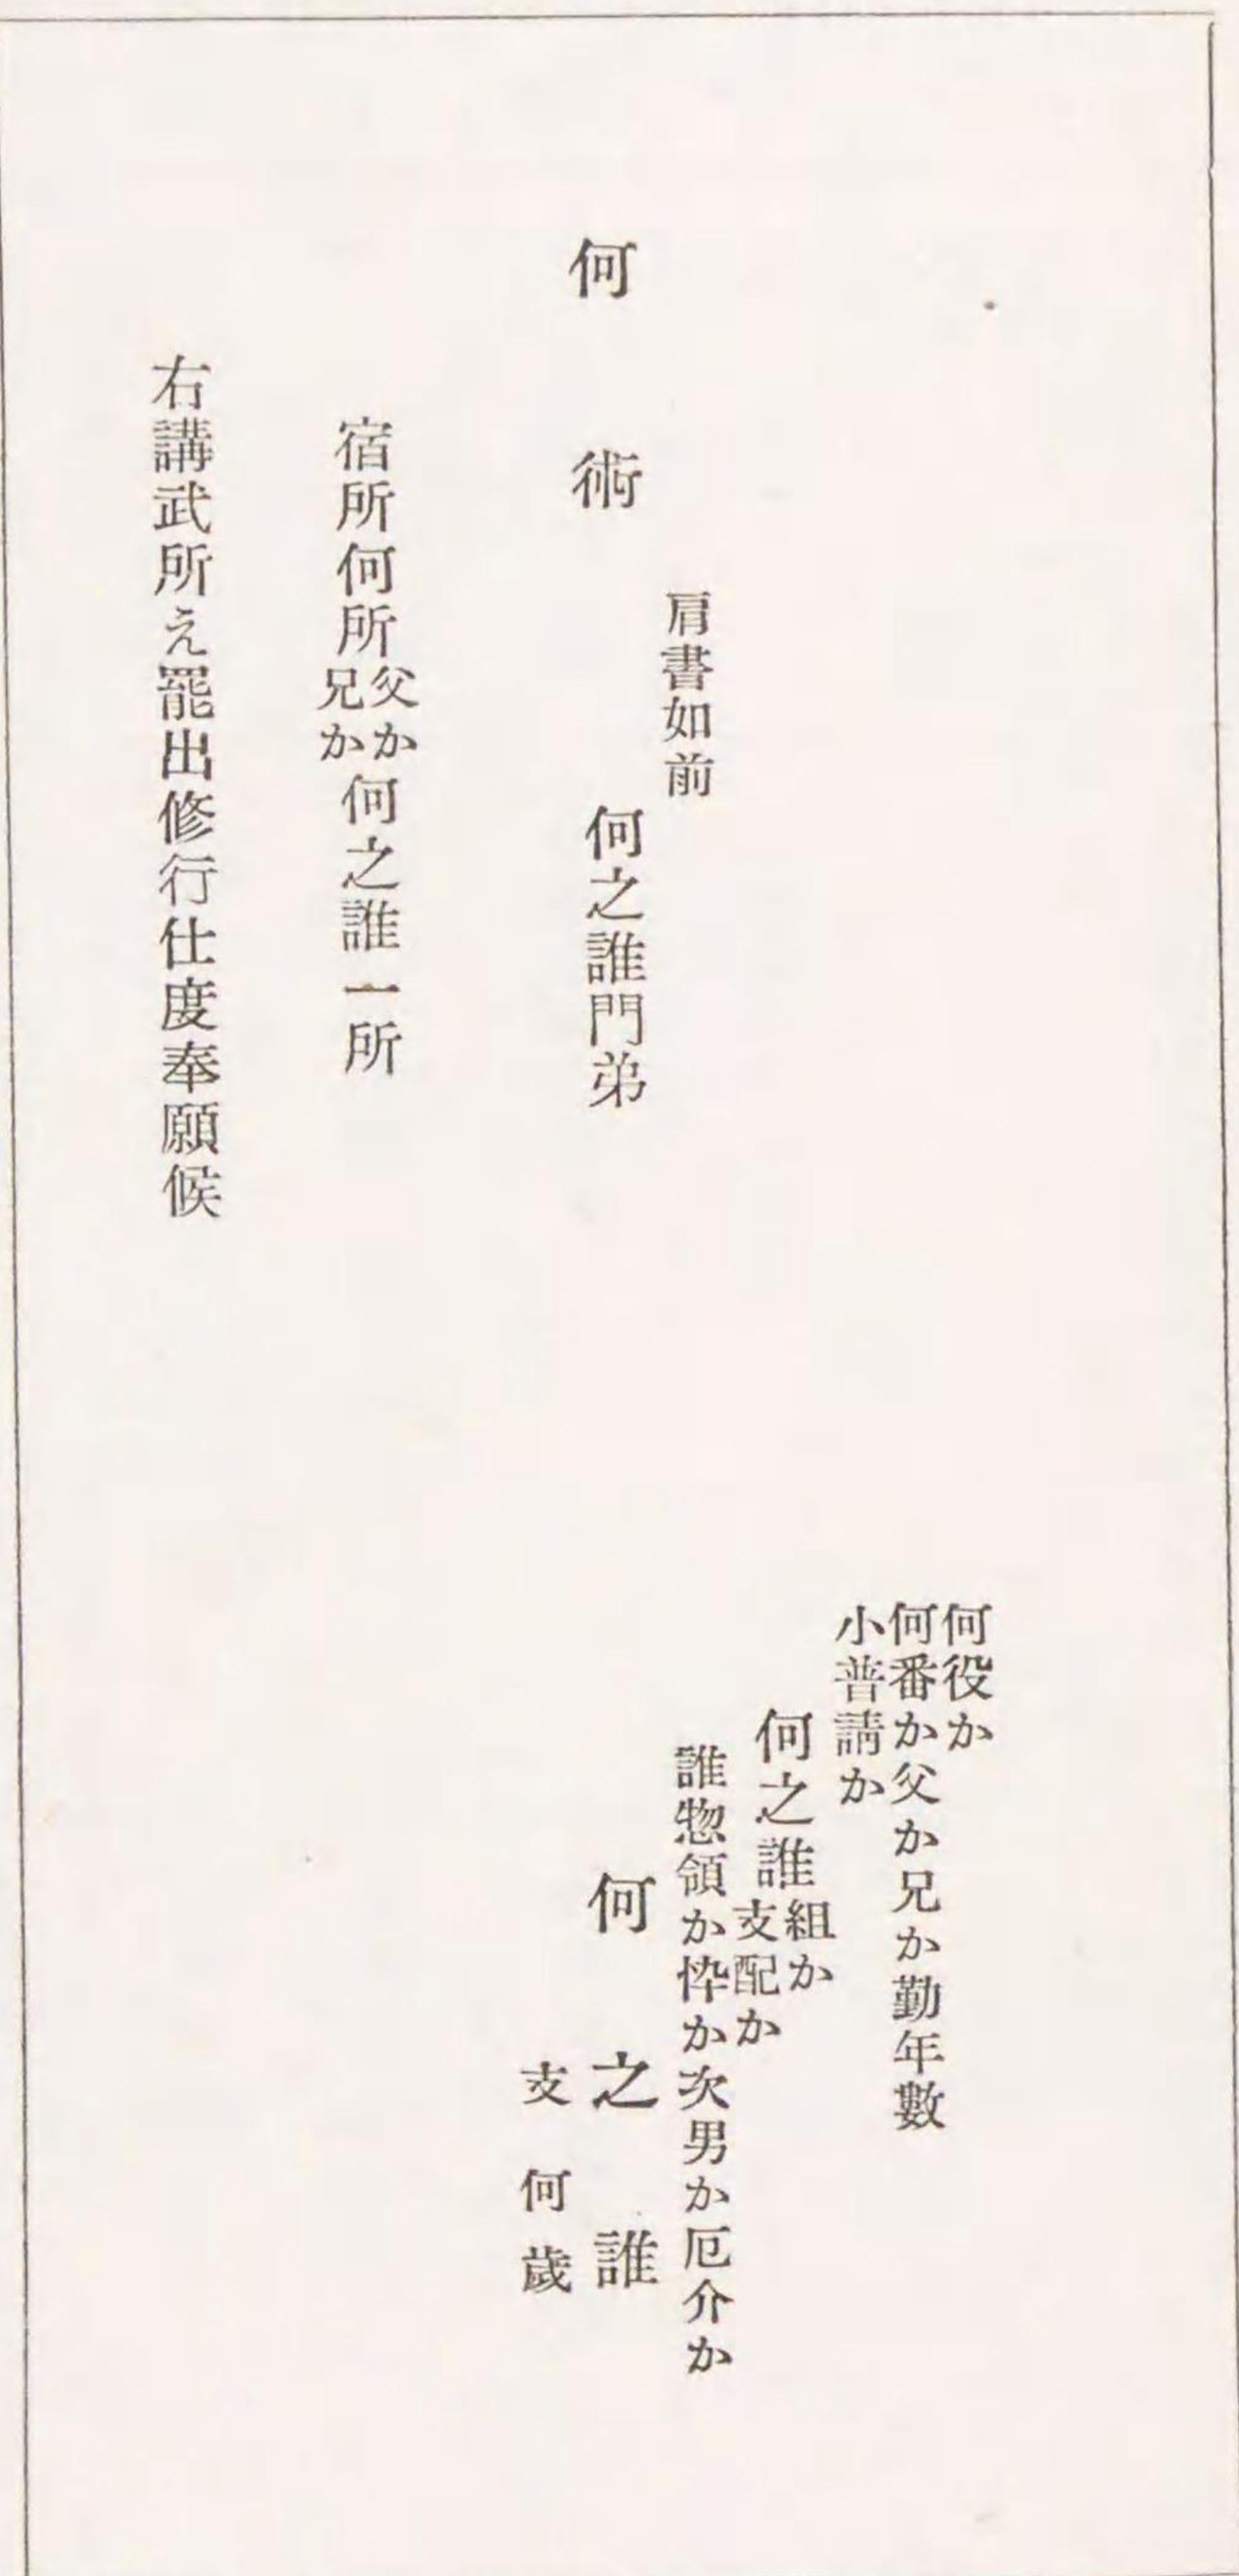 何役か
何番か父か兄か勤年數
小普請か
何之誰組か
支配か
誰惣領か忰か次男か厄介か
肩書如前
何術
何之誰門弟
何之誰
支何歲
宿所何所父か
兄か何之誰一所
右講武所え罷出修行仕度奉願候